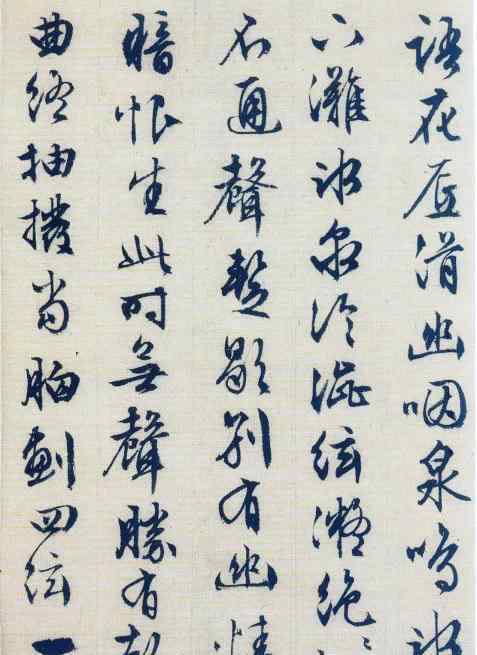 語花底滑幽咽泉鳴冰
下灘冰泉冷澀絃凝絶
不通聲暫歇別有幽情
暗恨生此时無聲勝有聲
曲終抽撥當胸劃四絃一